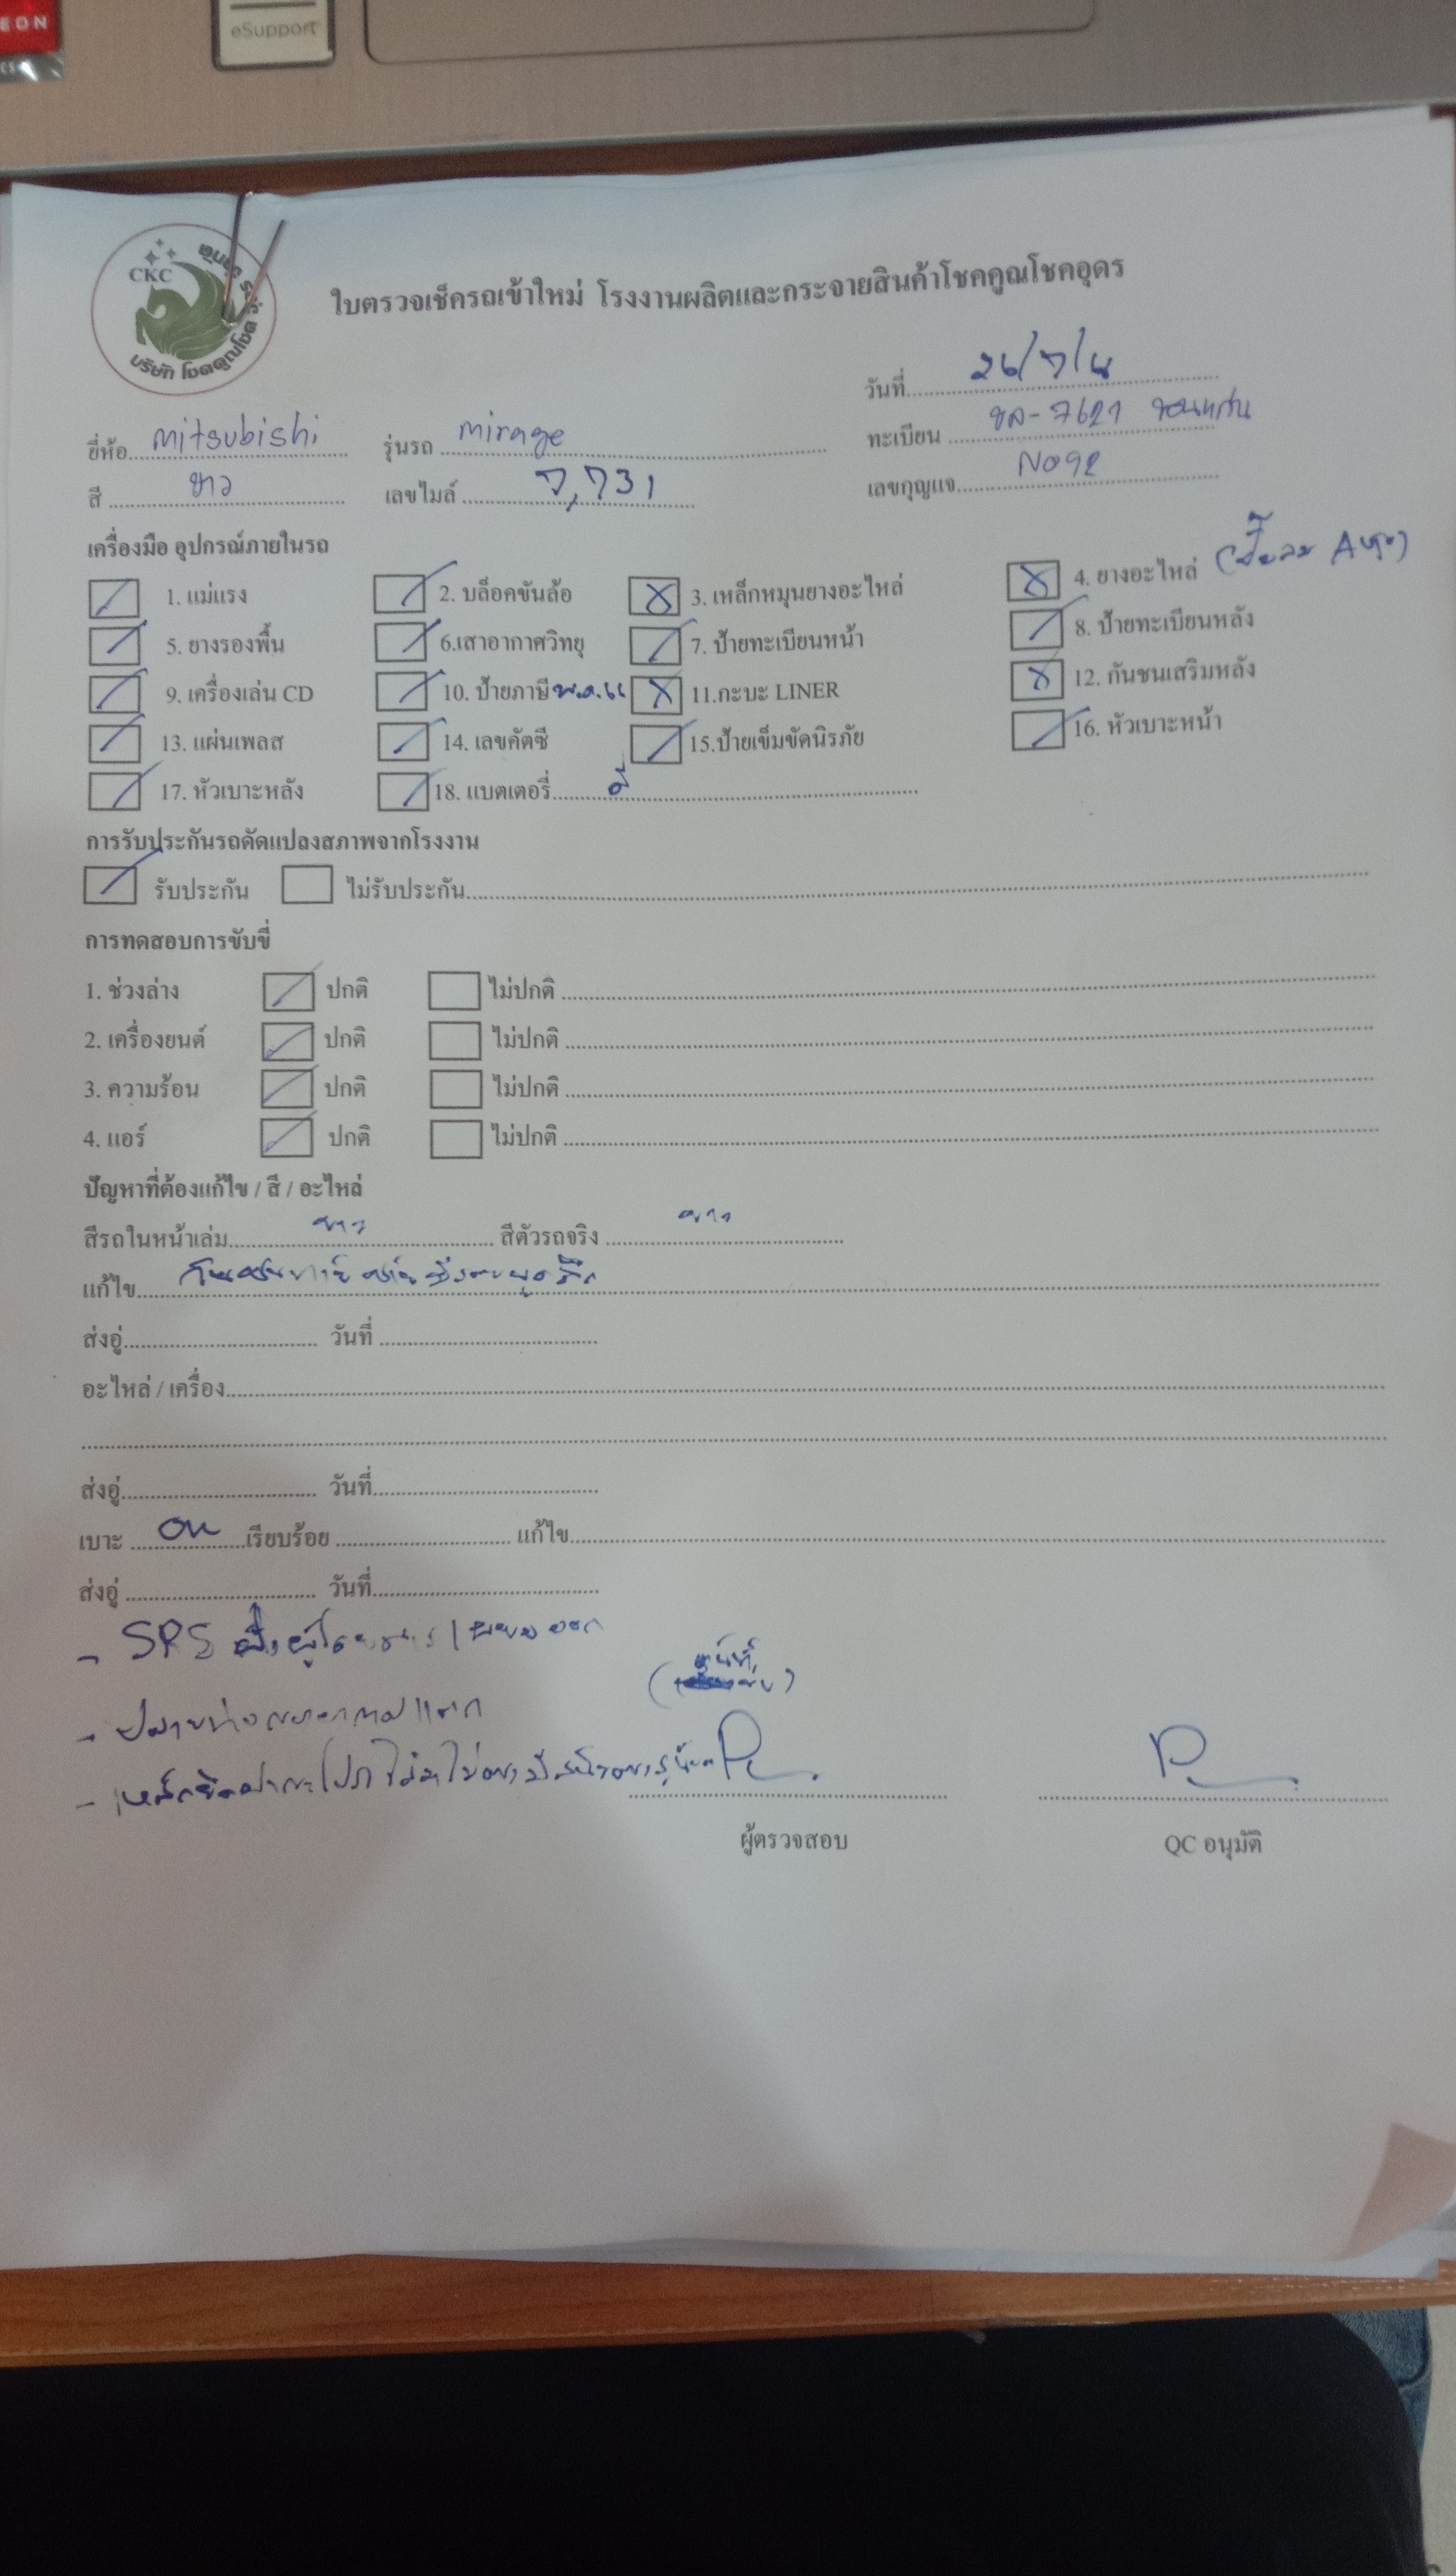 eSupport
CKC
บริษัท โชคคูณโชค
ใบตรวจเช็ครถเข้าใหม่ โรงงานผลิตและกระจายสินค้าโชคคูณโชคอุดร
วันที่
ยี่ห้อ mitsubishi รุ่นรถ mirage ทะเบียน ขล-7621 ขอนแก่น
สี ขาว เลขไมล์ เลขกุญแจ No92
เครื่องมือ อุปกรณ์ภายในรถ
1. แม่แรง 2. บล็อคขันล้อ 3. เหล็กหมุนยางอะไหล่ 4. ยางอะไหล่
5. ยางรองพื้น 6.เสาอากาศวิทยุ 7. ป้ายทะเบียนหน้า 8. ป้ายทะเบียนหลัง
9. เครื่องเล่น CD 10. ป้ายภาษี 11.กะบะ LINER 12. กันชนเสริมหลัง
13. แผ่นเพลส 14. เลขคัตซี 15.ป้ายเข็มขัดนิรภัย 16. หัวเบาะหน้า
17. หัวเบาะหลัง 18. แบตเตอรี่ มี
การรับประกันรถดัดแปลงสภาพจากโรงงาน
รับประกัน ไม่รับประกัน
การทดสอบการขับขี่
1. ช่วงล่าง ปกติ ไม่ปกติ
2. เครื่องยนต์ ปกติ ไม่ปกติ
3. ความร้อน ปกติ ไม่ปกติ
4. แอร์ ปกติ ไม่ปกติ
ปัญหาที่ต้องแก้ไข / สี / อะไหล่
สีรถในหน้าเล่ม ขาว สีตัวรถจริง ขาว
แก้ไข
ส่งอู่ วันที่
อะไหล่ / เครื่อง
ส่งอู่ วันที่
เบาะ เรียบร้อย แก้ไข
ส่งอู่ วันที่
- SRS
ผู้ตรวจสอบ QC อนุมัติ